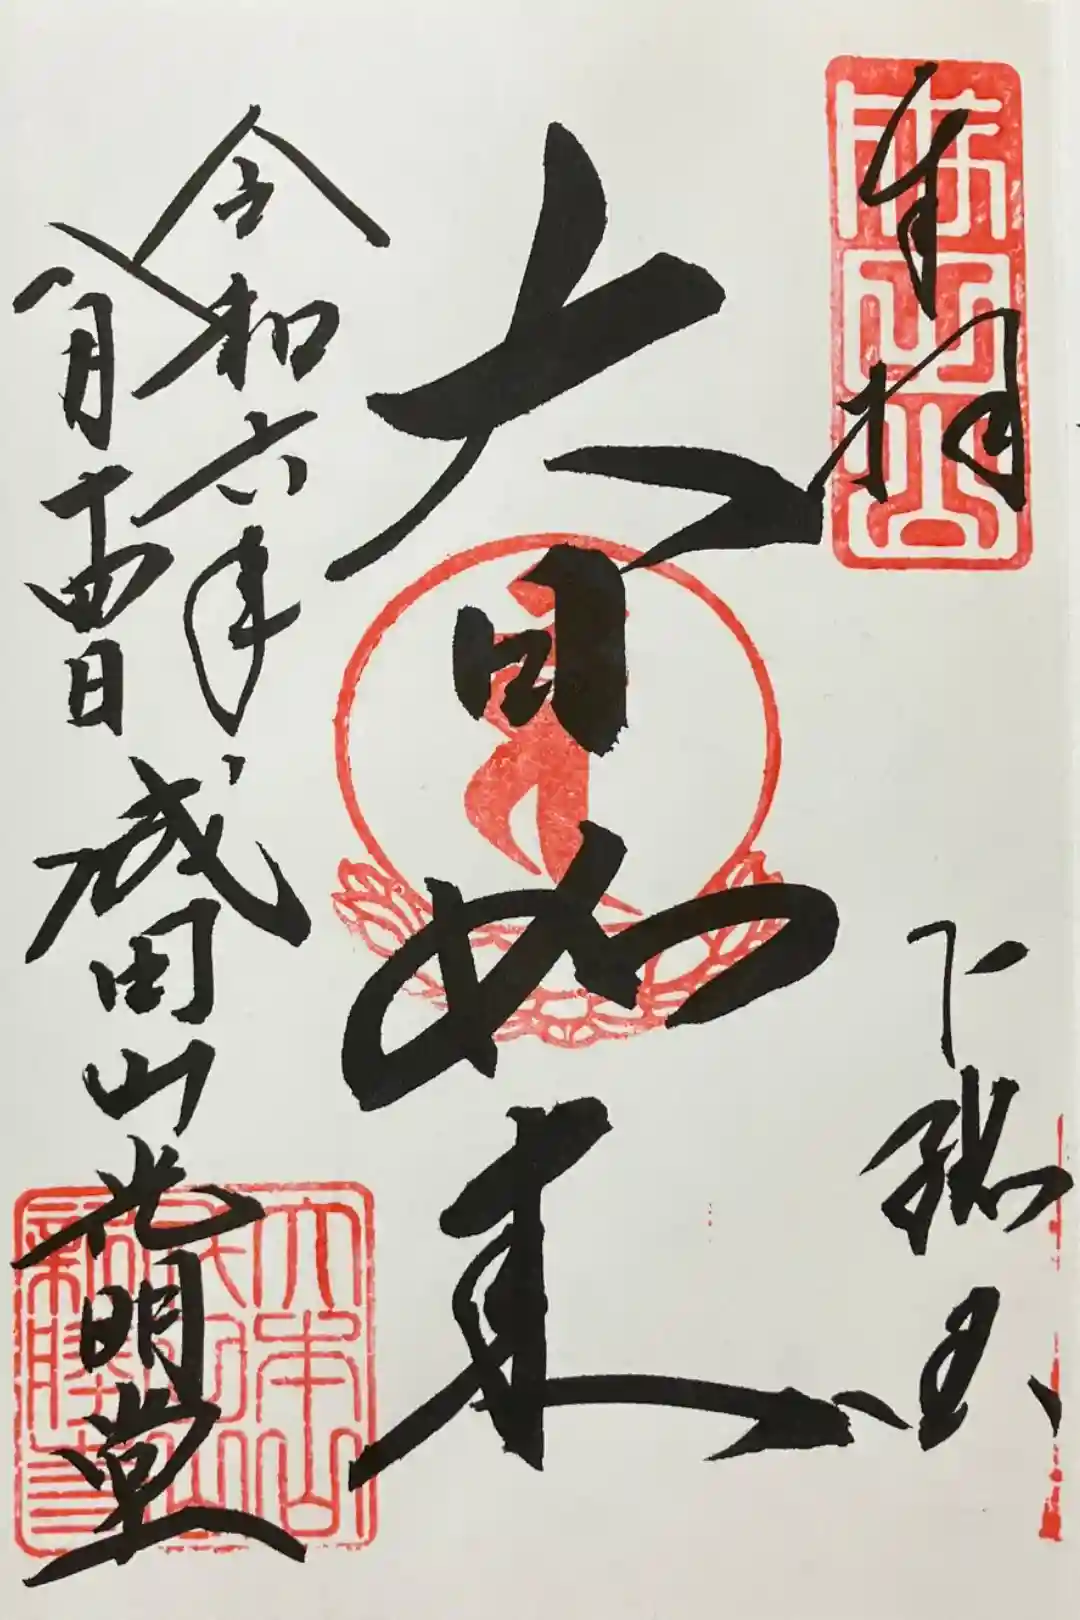 奉拝
下総国
成田山
大日如来
令和六年
八月十四日
成田山光明堂
大本山
成田山
新勝寺